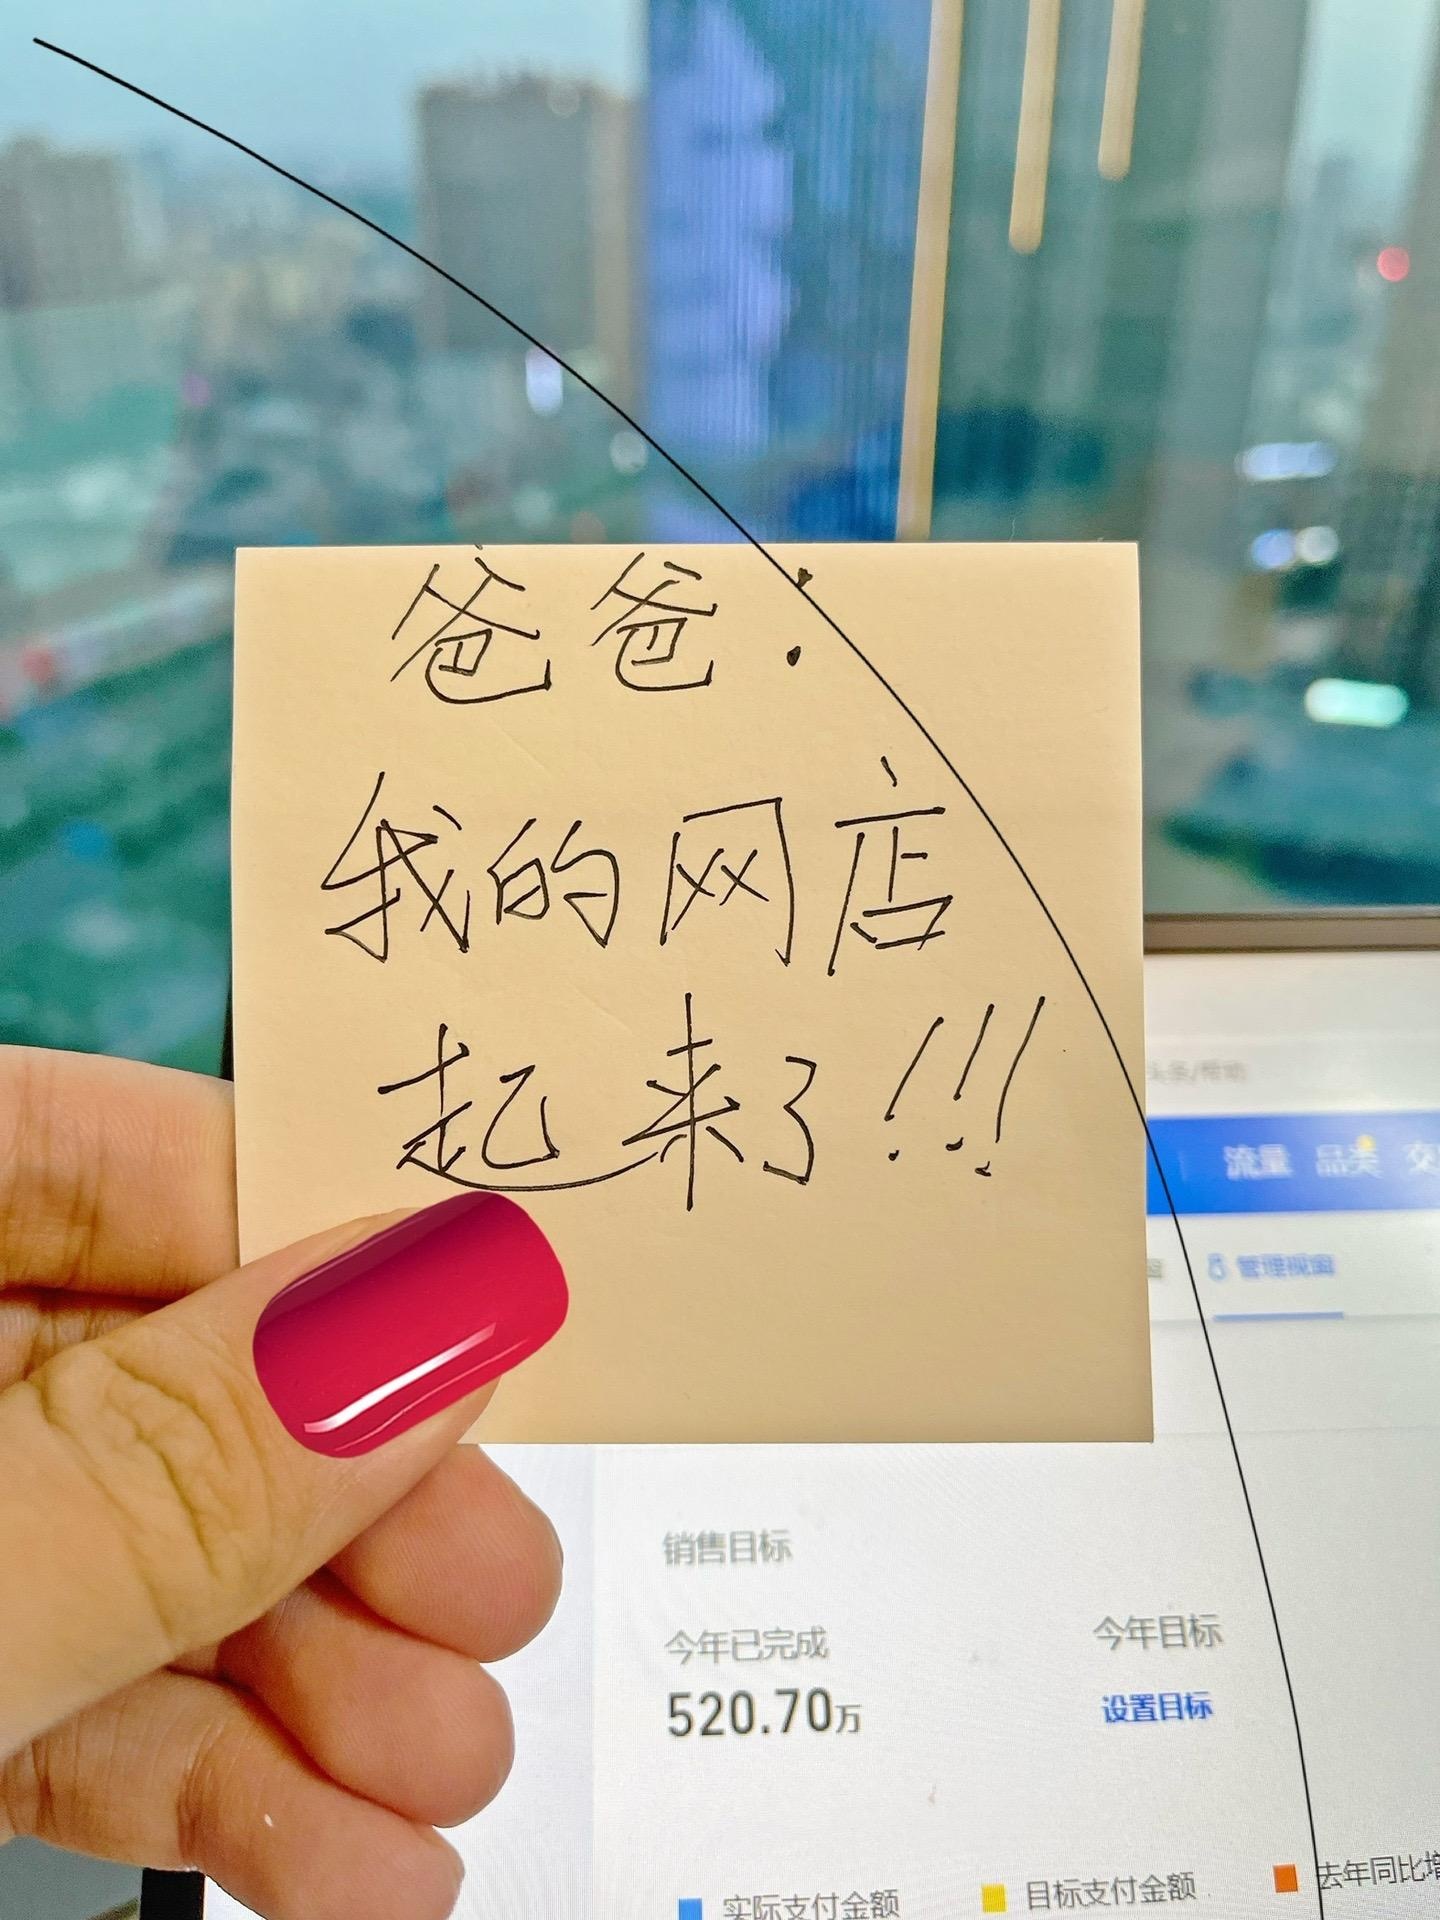 爸爸：
我的网店
起来了!!!
头条/
流量 品类
管理视窗
销售目标
今年已完成 今年目标
520.70万 设置目标
实际支付金额 目标支付金额 去年同比增